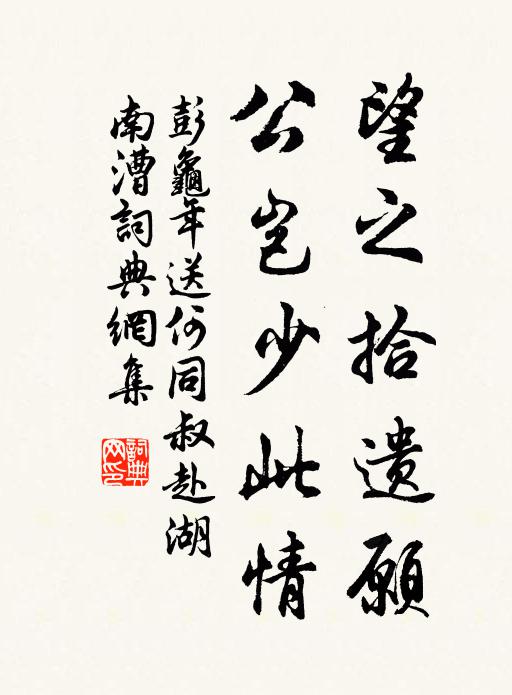 望之拾遗願
公豈少此情
彭龜年送何同叔赴湖
南漕詞典網集
詞典網印